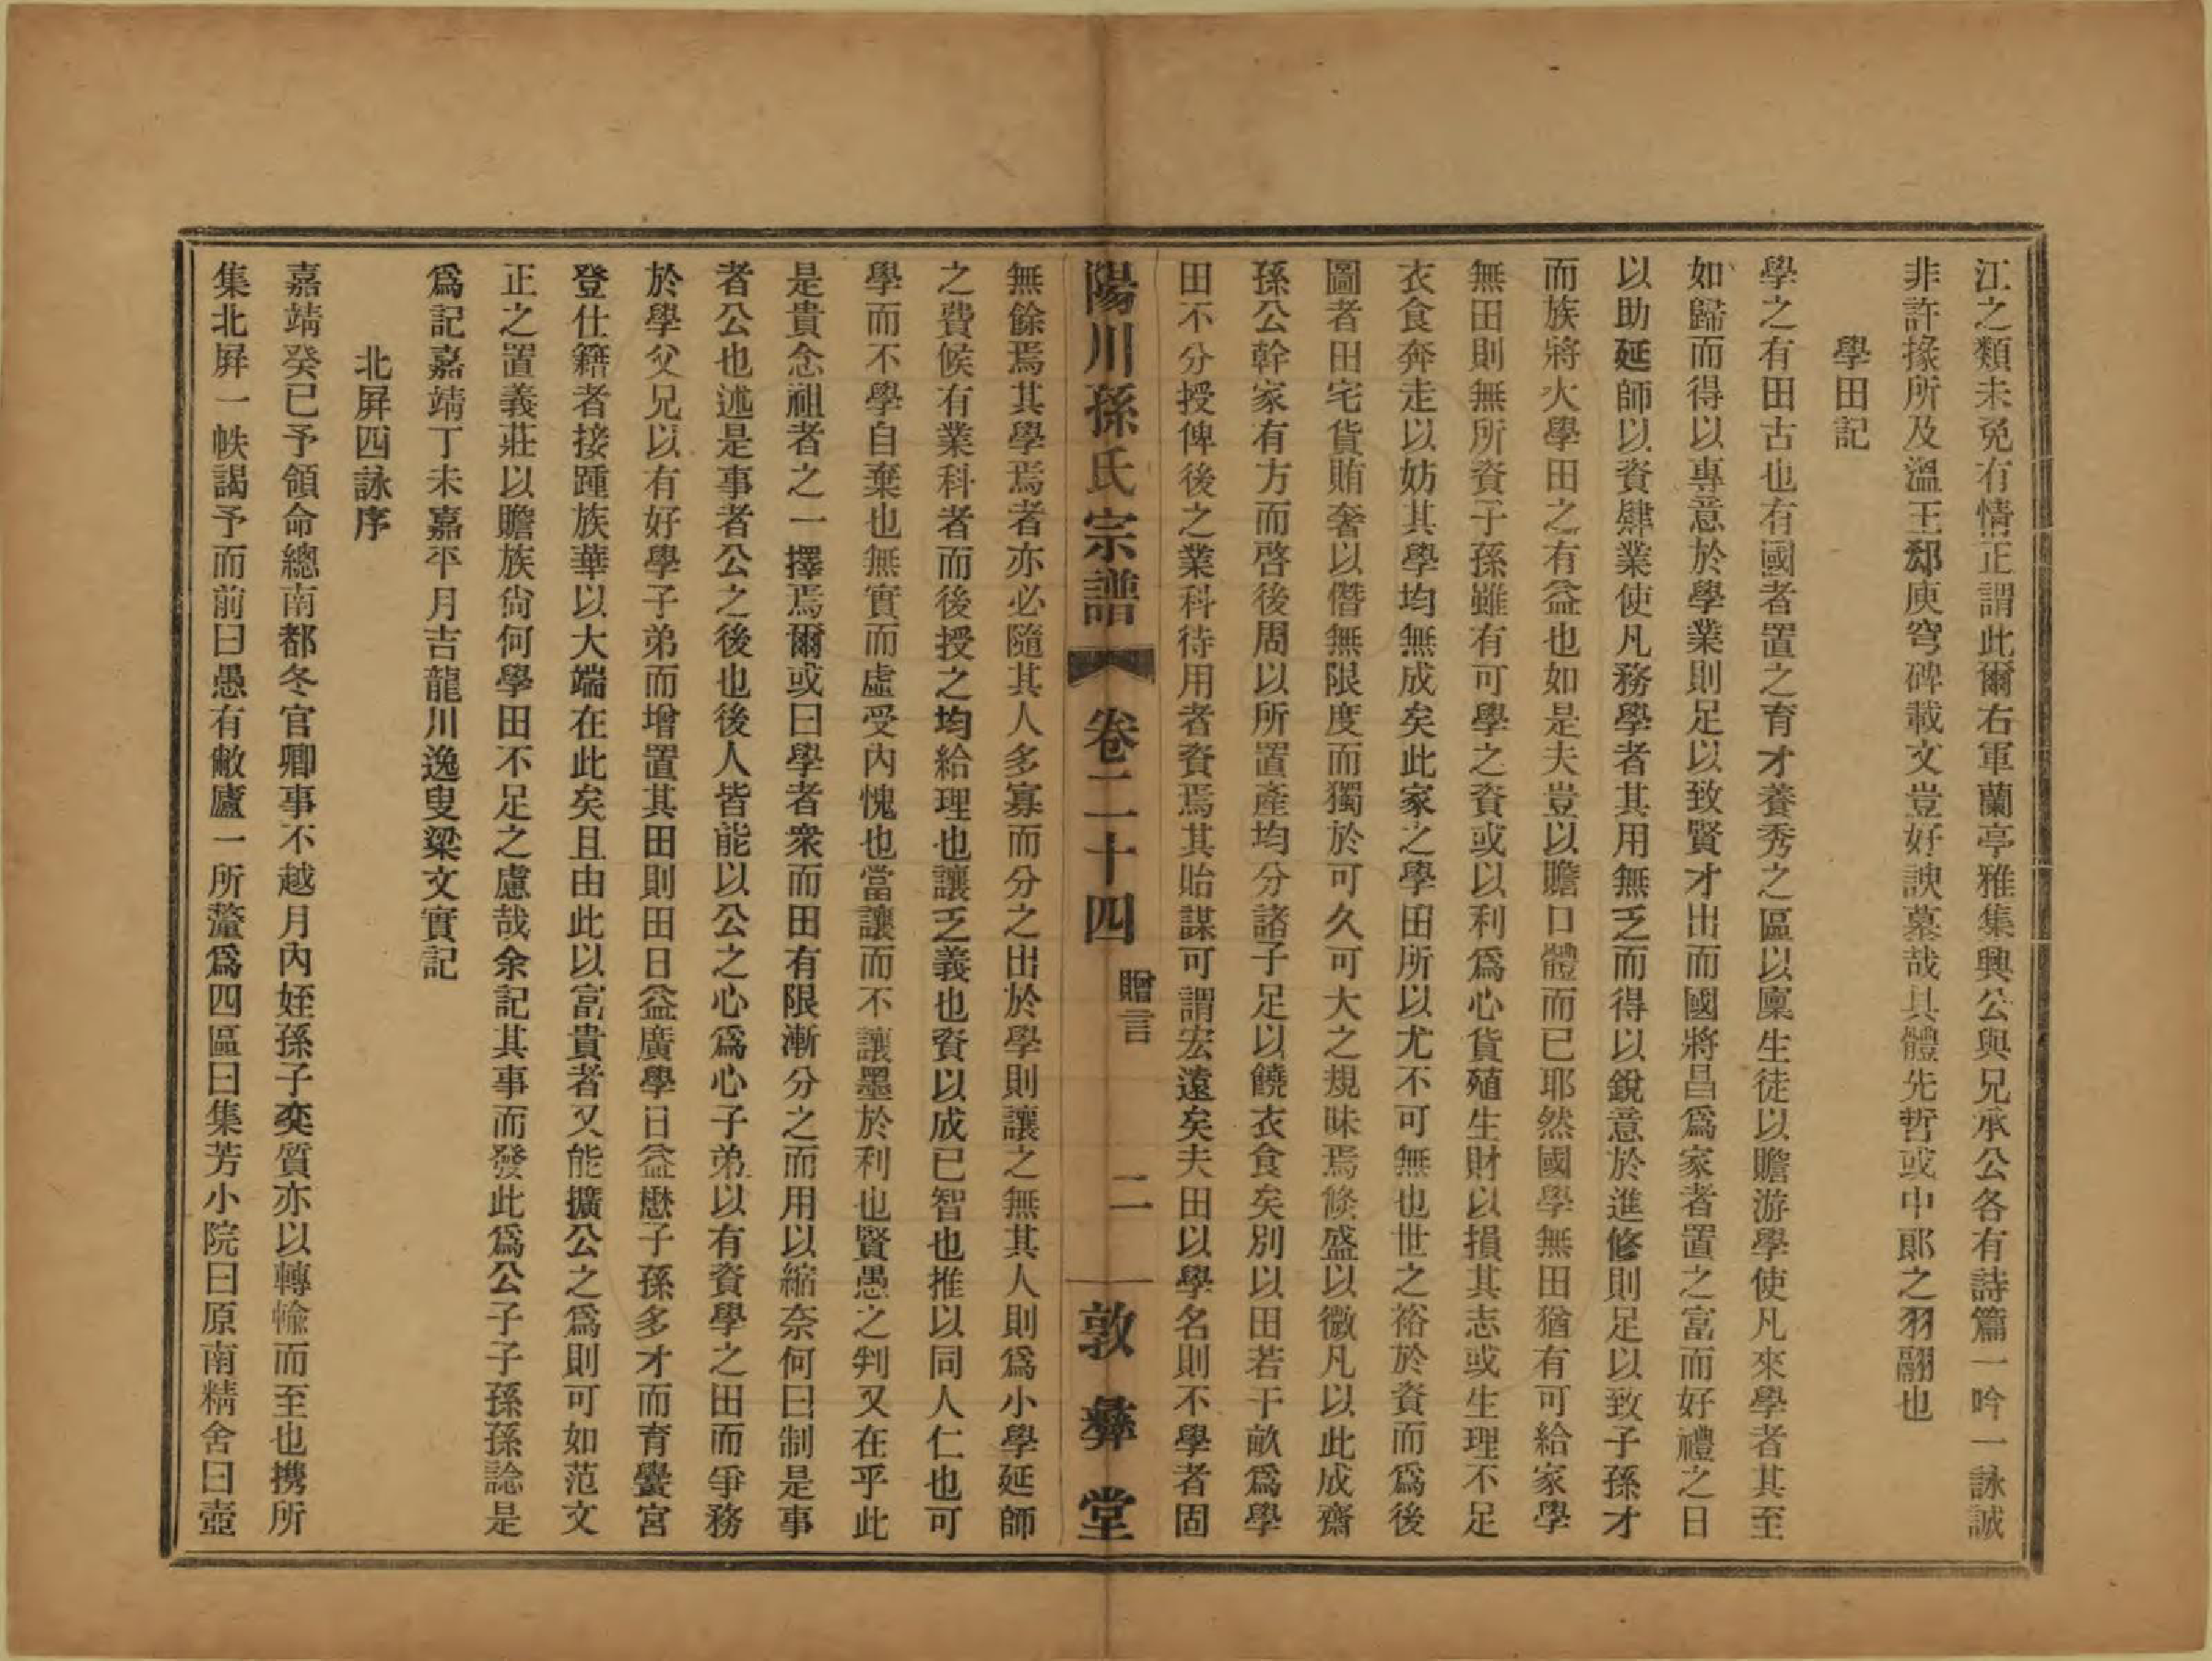 江之類未免有情正謂此爾右軍蘭亭雅集興公與兄承公各有詩篇一吟一詠誠
非許掾所及溫王郄庾穹碑載文豈好諛墓哉具體先哲或中郎之羽翮也
學田記
學之有田古也有國者置之育才養秀之區以廩生徒以贍游學使凡來學者其至
如歸而得以專意於學業則足以致賢才出而國將昌爲家者置之富而好禮之日
以助延師以資肄業使凡務學者其用無乏而得以銳意於進修則足以致子孫才
而族將大學田之有益也如是夫豈以贍口體而已耶然國學無田猶有可給家學
無田則無所資子孫雖有可學之資或以利爲心貨殖生財以損其志或生理不足
衣食奔走以妨其學均無成矣此家之學田所以尤不可無也世之裕於資而爲後
圖者田宅貨賄奢以僭無限度而獨於可久可大之規昧焉倐盛以微凡以此成齋
孫公幹家有方而啓後周以所置產均分諸子足以饒衣食矣別以田若干畝爲學
田不分授俾後之業科待用者資焉其貽謀可謂宏遠矣夫田以學名則不學者固
陽川孫氏宗譜 卷二十四 贈言 二 敦彝堂
無餘焉其學焉者亦必隨其人多寡而分之出於學則讓之無其人則爲小學延師
之費候有業科者而後授之均給理也讓乏義也資以成已智也推以同人仁也可
學而不學自棄也無實而虛受內愧也當讓而不讓墨於利也賢愚之判又在乎此
是貴念祖者之一擇焉爾或曰學者衆而田有限漸分之而用以縮奈何曰制是事
者公也述是事者公之後也後人皆能以公之心爲心子弟以有資學之田而爭務
於學父兄以有好學子弟而增置其田則田日益廣學日益懋子孫多才而育黌宮
登仕籍者接踵族華以大端在此矣且由此以富貴者又能擴公之爲則可如范文
正之置義莊以贍族尙何學田不足之慮哉余記其事而發此爲公子子孫孫諗是
爲記嘉靖丁未嘉平月吉龍川逸叟梁文實記
北屛四詠序
嘉靖癸已予領命總南都冬官卿事不越月內姪孫子奕質亦以轉輸而至也携所
集北屛一帙謁予而前曰愚有敝廬一所釐爲四區曰集芳小院曰原南精舍曰壺